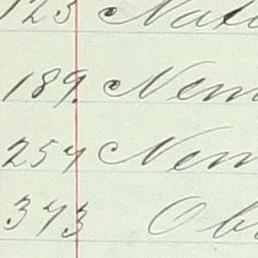 123 Nat
189. Nem
257 Nem
373 Ob